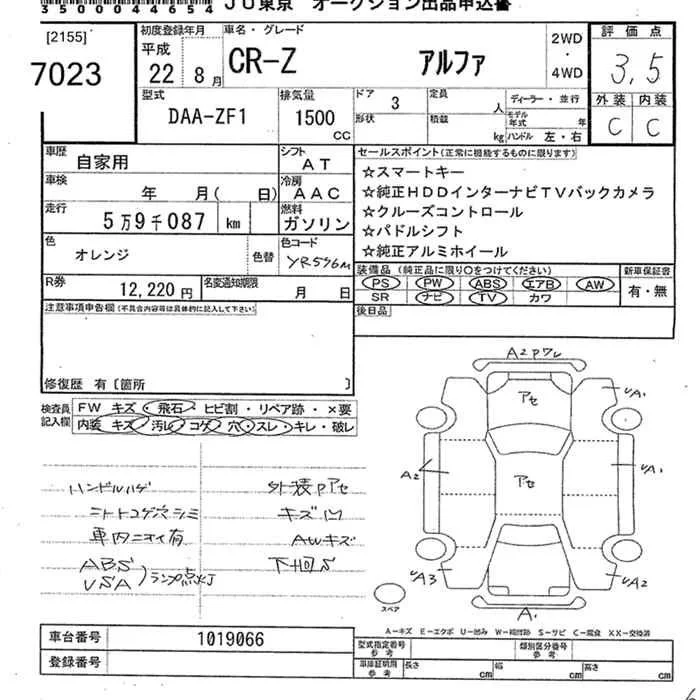 3500044654 JU東京 オークション出品申込書
[2155]
7023
初度登録年月
平成
22年 8月
車名・グレード
CR-Z アルファ
2WD
・
4WD
評価点
3,5
外装 内装
C C
型式
DAA-ZF1
排気量
1500
CC
ドア 3
形状
定員
人
積載
kg
ディーラー・並行
モデル年式 年
ハンドル 左・右
車歴
自家用
シフト
AT
車検
年 月( 日)
冷房
AAC
走行
5万9千087 km
燃料
ガソリン
色
オレンジ
色替
色コード
YR596M
R券
12,220 円
名変通知期限
月 日
セールスポイント(正常に機能するものに限ります)
☆スマートキー
☆純正HDDインターナビTVバックカメラ
☆クルーズコントロール
☆パドルシフト
☆純正アルミホイール
装備品(純正品に限り○をつけてください)
PS PW ABS エアB AW
SR ナビ TV カワ
新車保証書
有・無
後日品
注意事項申告欄(不具合内容等は具体的に記入して下さい)
修復歴 有〔箇所 〕
検査員
記入欄
FW キズ・飛石・ヒビ割・リペア跡・×要
内装 キズ・汚レ・コゲ・穴・スレ・キレ・破レ
ハンドルハゲ
車内ニオイ有
ABS
VSA
ランプ点灯
外装Pアセ
キズ凹
AWキズ
下回S
A2Pワレ
アセ
UA1
A2
アセ
UA1
UA3
UA2
A1
スペア
A-キズ E-エクボ U-凹み W-補修跡 S-サビ C-腐食 XX-交換済
車台番号
1019066
登録番号
型式指定番号
参考
類別区分番号
参考
車庫証明用
参考
長さ
cm
幅
cm
高さ
cm